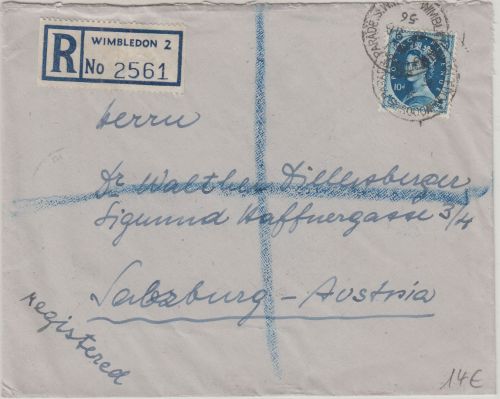 R WIMBLEDON 2
No 2561
56
10D
Herrn
Dr Walther Dillersberger
Sigmund Haffnergasse 3/4
Salzburg - Austria
registered
14€